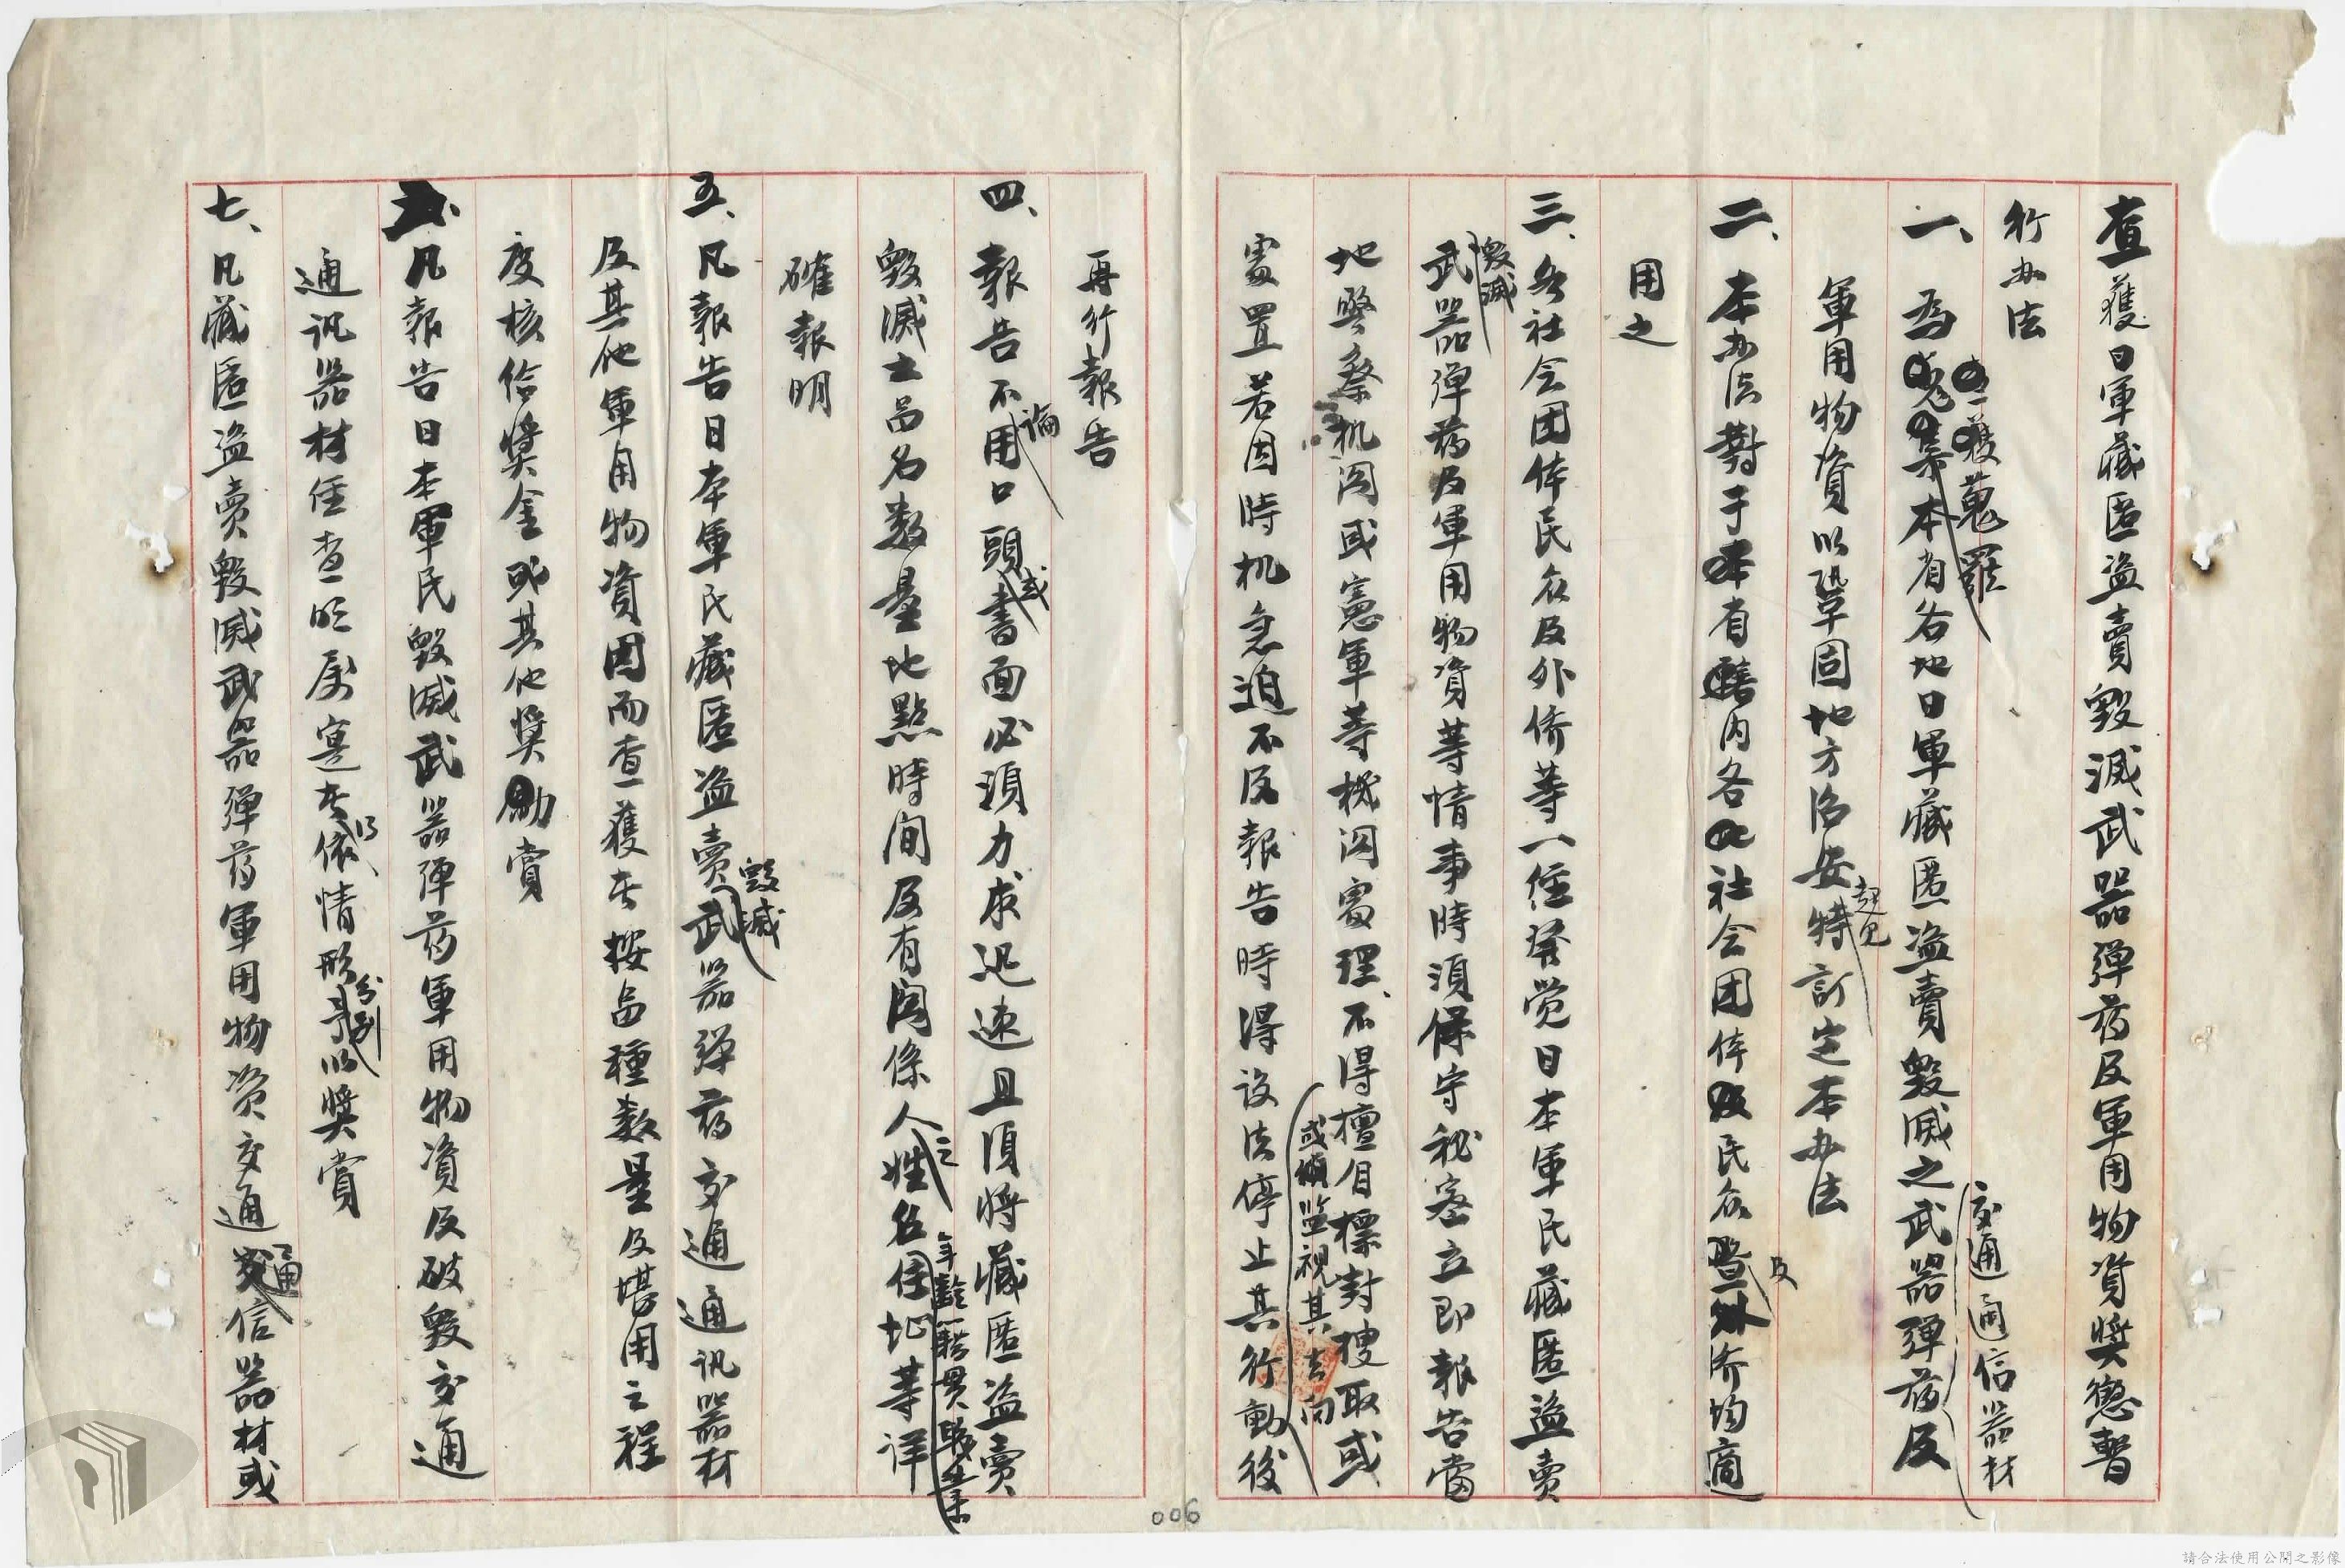 查獲日軍藏匿盜賣毀滅武器弹药及軍用物資奨懲暫
行办法
一、為蒐集本省各地日軍藏匿盜賣毀滅之武器弹药及
獲蒐羅
交通通信器材
軍用物資以鞏固地方治安特訂定本办法
起見
二、本办法對于本省轄内各社会团体及民众暨外侨均適
及
用之
三、各社会团体民众及外侨等一经发觉日本軍民藏匿盜賣
毀滅
武器弹药及軍用物資等情事時須保守秘密立即報告當
地警察机関或憲軍等機関處理、不得擅自標封搜取或
或偵监視其去向
處置若因時机急迫不及報告時得设法停止其行動後
再行報告
四、報告不用口頭書面必須力求迅速且須將藏匿盜賣
論
或
毀滅之品名数量地點時间及有関係人姓名住址等详
之
年齡籍貫職業
確報明
五、凡報告日本軍民藏匿盜賣武器弹药交通通讯器材
毀滅
及其他軍用物資因而查獲者按品種数量及堪用之程
度核给奨金或其他奨励賞
凡報告日本軍民毀滅武器弹药軍用物資及破毀交通
通讯器材经查明属寔者依情形予以奨賞
得
分别
七、凡藏匿盜賣毀滅武器弹药軍用物資交通信器材或
通
006
請合法使用公開之影像